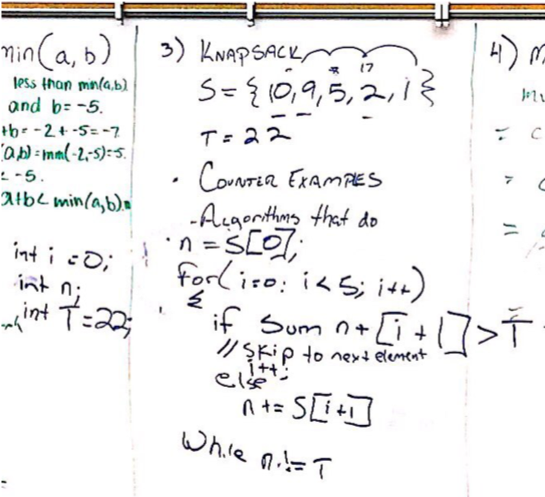 min(a, b)
less than min(a,b)
and b=-5.
+b=-2+-5=-7
(a,b)=min(-2,-5)=-5.
<-5.
a+b< min(a,b).
int i =0;
int n;
int T=22;
3) KNAPSACK
17
S= {10,9,5,2,1}
T= 22
• COUNTER EXAMPLES
-Algorithms that do
n = S[0];
for(i=0; i<5; i++)
{
if Sum n+[i+1]>T
// Skip to next element
i++;
else
n+= S[i+1]
While n != T
4) M
= C
=